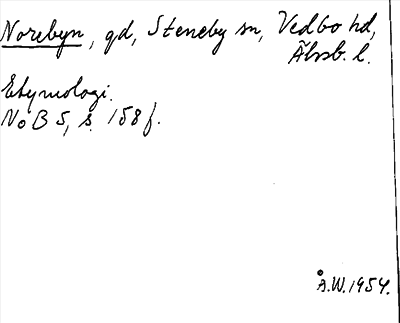 Norebyn, gd, Steneby sn, Vedbo hd,
Älvsb. l.
Etymologi.
NoB 5, s. 158 f.
Å.W. 1954.